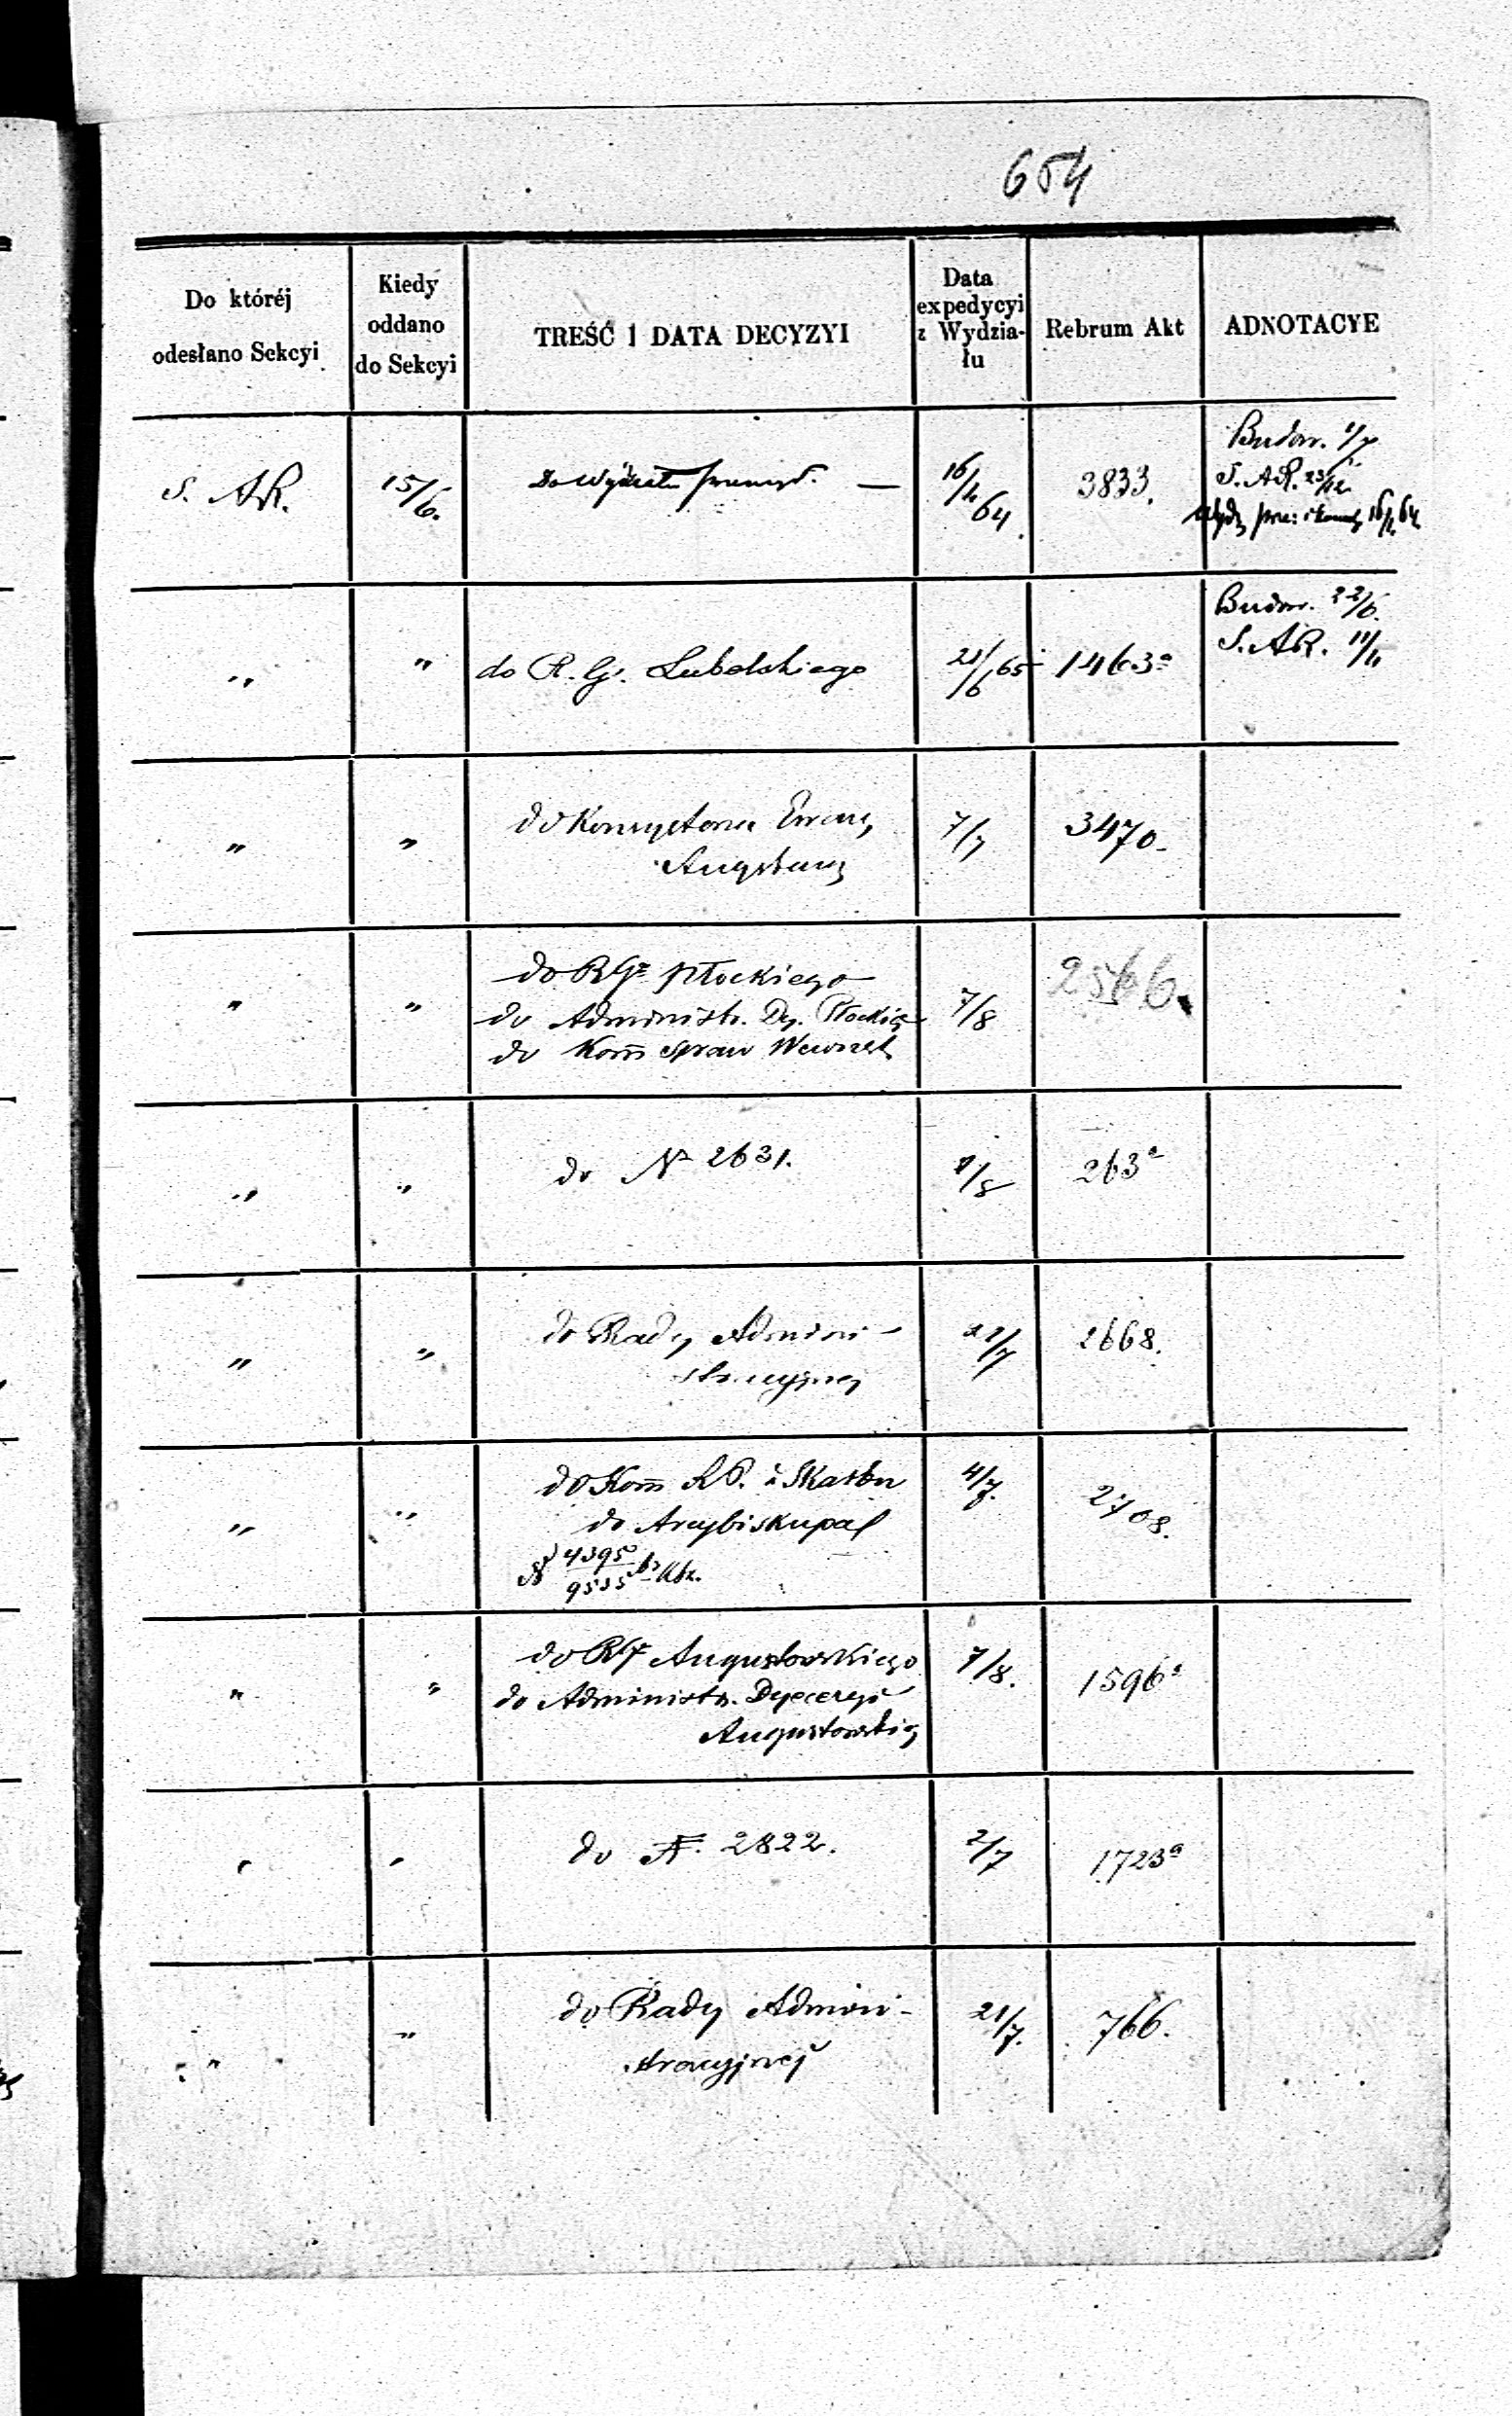 654
Do któréj odesłano Sekcyi
Kiedy oddano do Sekcyi
TREŚĆ I DATA DECYZYI
Data expedycyi z Wydziału
Rebrum Akt
ADNOTACYE
S. AR. 15/6. Do Wydziału 16/4 64. 3833. Budow. 1/7
S. AR. 23/12
16/4 64
" " do R. G. Lubelskiego 21/6 65 1463a Budow. 22/6.
S. AR. 11/11
" " do Konsystorza Ewang 7/7 3470
Augsburg
" " do RGu Płockiego 7/8
do Administr. Dy. Płockiej
do Komm Spraw Wewnęt
" " do No 2631. 1/8 263a
" " do Rady Admini- 21/7 2668.
stracyjnej
" " do Komm RP. i Skarbu 4/7. 2708.
do Arcybiskupa
N 4395/9535
" " do RGu Augustowskiego 7/8. 1596a
do Administr. Dyecezyi
Augustowskiej
" " do N. 2822. 2/7 1723a
" " do Rady Admini- 21/7. 766.
stracyjnej